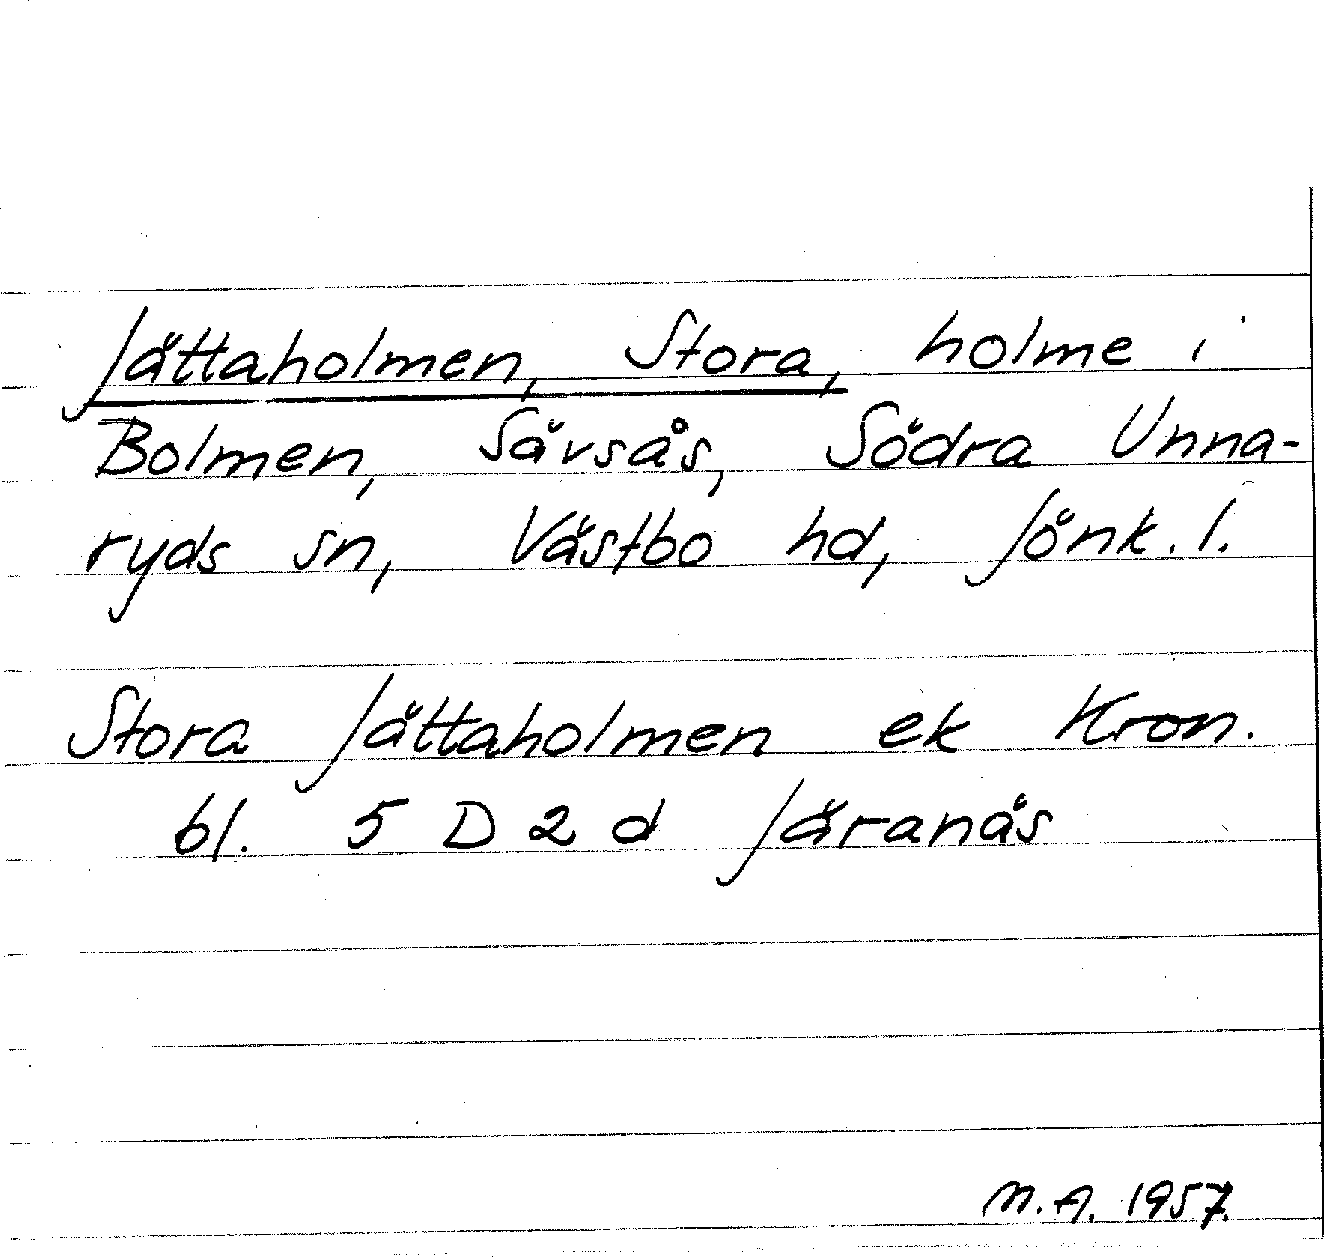 Jättaholmen, Stora, holme i
Bolmen, Sävsås, Södra Unna-
ryds sn, Västbo hd, Jönk. l.
Stora Jättaholmen ek Kron.
bl. 5 D 2 d Järanäs
M.A. 1957.